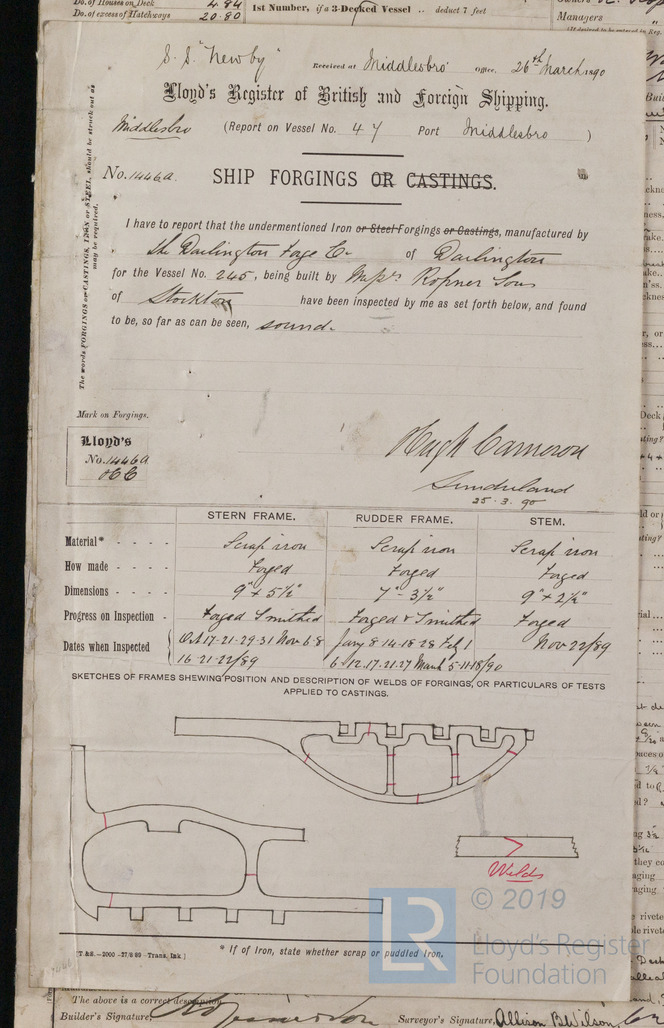 Do. of Houses on Deck 4.84
Do. of excess of Hatchways 20.80
1st Number, if a 3-Decked Vessel .. deduct 7 feet
Managers
S.S. "Newby"
Received at Middlesbro' Office, 26th March 1890
Lloyd's Register of British and Foreign Shipping.
Middlesbro (Report on Vessel No. 47 Port Middlesbro )
No. 1446a. SHIP FORGINGS OR CASTINGS.
The words FORGINGS or CASTINGS, IRON or STEEL, should be struck out as may be required.
I have to report that the undermentioned Iron or Steel Forgings or Castings, manufactured by
the Darlington Forge Co. of Darlington
for the Vessel No. 245, being built by Messrs Ropner Sons
of Stockton have been inspected by me as set forth below, and found
to be, so far as can be seen, sound.
Mark on Forgings.
Lloyd's
No. 1446a
Hugh Cameron
Sunderland
25.3.90
STERN FRAME. RUDDER FRAME. STEM.
Material* - - - - Scrap iron Scrap iron Scrap iron
How made - - - - Forged Forged Forged
Dimensions - - - - 9" × 5½" 7" - 3½" 9" × 2½"
Progress on Inspection - Forged Smithed Forged & Smithed Forged
Dates when Inspected { Oct 17-21-29-31 Nov 6-8 Jany 8-14-18-28 Feb 1 Nov 22/89
16-21-22/89 6-12-17-21-27 March 5-11-18/90
SKETCHES OF FRAMES SHEWING POSITION AND DESCRIPTION OF WELDS OF FORGINGS, OR PARTICULARS OF TESTS
APPLIED TO CASTINGS.
Welds
© 2019
LR
Lloyd's Register
Foundation
* If of Iron, state whether scrap or puddled Iron.
[T.&S.—2000 -27/8 89 - Trans. Ink.]
The above is a correct description
Builder's Signature, Surveyor's Signature, Allison B Wilson